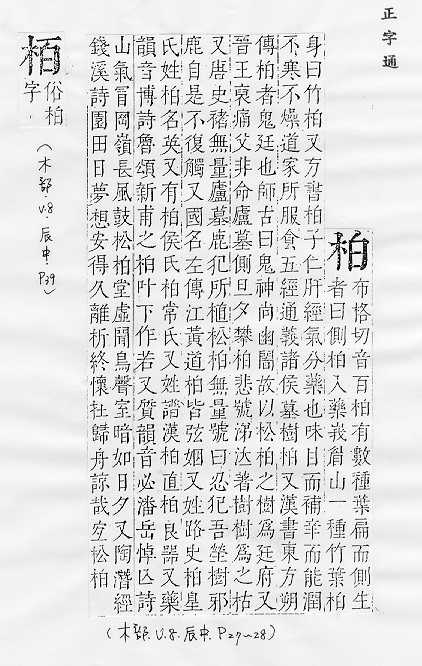 正字通
柏 布格切音百柏有數種葉扁而側生
者曰側柏入藥峩眉山一種竹葉柏
身曰竹柏又方書柏子仁肝經氣分藥也味甘而補辛而能潤
不寒不燥道家所服食五經通義諸侯墓樹柏又漢書東方朔
傳柏者鬼廷也師古曰鬼神尚幽闇故以松柏之樹爲廷府又
晉王裒痛父非命廬墓側旦夕攀柏悲號涕泣著樹樹爲之枯
又唐史禇無量廬墓鹿犯所植松柏無量號曰忍犯吾塋樹邪
鹿自是不復觸又國名左傳江黃道柏皆弦姻又姓路史柏皇
氏姓柏名英又有柏侯氏柏常氏又姓證漢柏直柏良器又藥
韻音博詩魯頌新甫之柏叶下作若又質韻音必潘岳悼亡詩
山氣冒岡嶺長風鼓松柏堂虛聞鳥聲室暗如日夕又陶潛經
錢溪詩園田日夢想安得久離析終懷在歸舟諒哉宜松柏
栢 俗柏
字
(木部 V.8.辰中.P39)
(木部.V.8.辰中.P27~28)